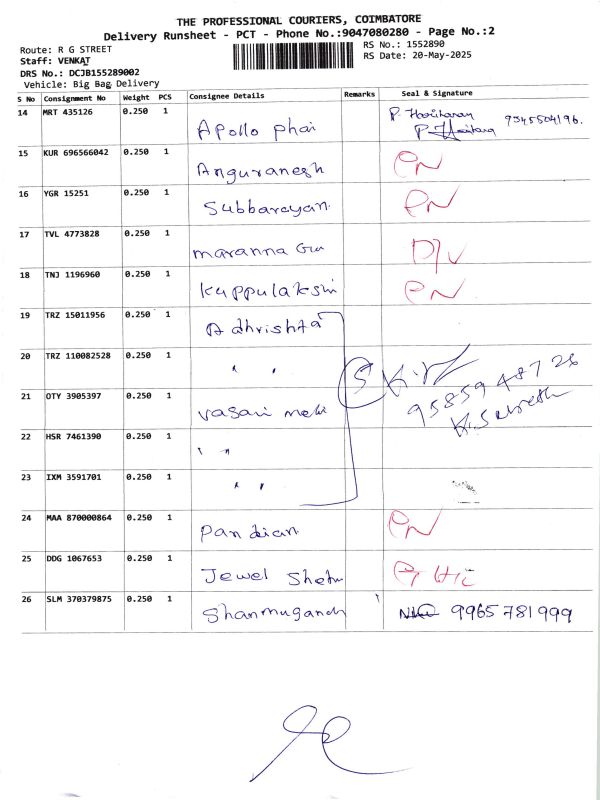 THE PROFESSIONAL COURIERS, COIMBATORE
Delivery Runsheet - PCT - Phone No.:9047080280 - Page No.:2
Route: R G STREET
RS No.: 1552890
Staff: VENKAT
RS Date: 20-May-2025
DRS No.: DCJB155289002
Vehicle: Big Bag Delivery
S No Consignment No Weight PCS Consignee Details Remarks Seal & Signature
14 MRT 435126 0.250 1 Apollo phai P. Hariharan 9345504196.
15 KUR 696566042 0.250 1 Anguranesh PN
16 YGR 15251 0.250 1 Subbarayan PN
17 TVL 4773828 0.250 1 maranna D/V
18 TNJ 1196960 0.250 1 Kuppulakshmi PN
19 TRZ 15011956 0.250 1 Adhrishta
20 TRZ 110082528 0.250 1 " " 5
21 OTY 3905397 0.250 1 vasan 9585948726
K. Suresh
22 HSR 7461390 0.250 1 " "
23 IXM 3591701 0.250 1 " "
24 MAA 870000864 0.250 1 Pandian PN
25 DDG 1067653 0.250 1 Jewel
26 SLM 370379875 0.250 1 Shanmugandh 9965781999